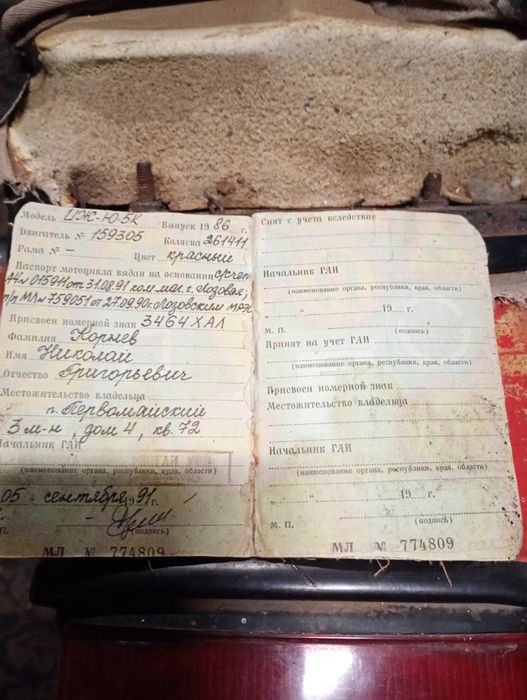 Модель ИЖ-Ю5К Выпуск 1986 г.
Двигатель № 159305 Коляска 261411
Рама № – Цвет красный
Паспорт мотоцикла выдан на основании
от 31.08.91 ком. маг. г. Лозовая,
т/п МЛ № 759051 от 27.09.90г. Лозовским
Присвоен номерной знак 3464 ХАЛ
Фамилия Корнев
Имя Николай
Отчество Григорьевич
Местожительство владельца
п. Первомайский
3 м-н, дом 4, кв. 72
Начальник ГАИ
(наименование органа, республики, края, области)
05 " сентября 1991 г.
М. П. (подпись)
МЛ № 774809
Снят с учета вследствие
Начальник ГАИ
(наименование органа, республики, края, области)
" " 19 г.
М. П. (подпись)
Принят на учет ГАИ
(наименование органа, республики, края, области)
Присвоен номерной знак
Местожительство владельца
Начальник ГАИ
(наименование органа, республики, края, области)
" " 19 г.
М. П. (подпись)
МЛ № 774809